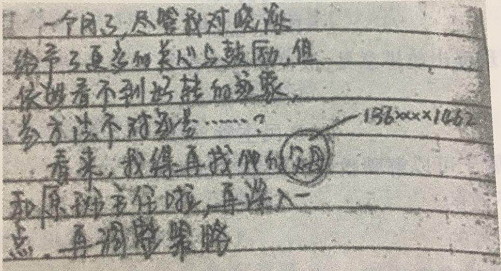 一个月了，尽管我对晓
给予了更多的关心与鼓励，但
依然看不到好转的迹象，
是方法不对还是……？
136xxxx1462
看来，我得再找他的父母
和原班主任啦，再深入一
点，再调整策略